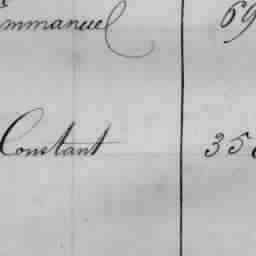 Emmanuel 69
Constant 35